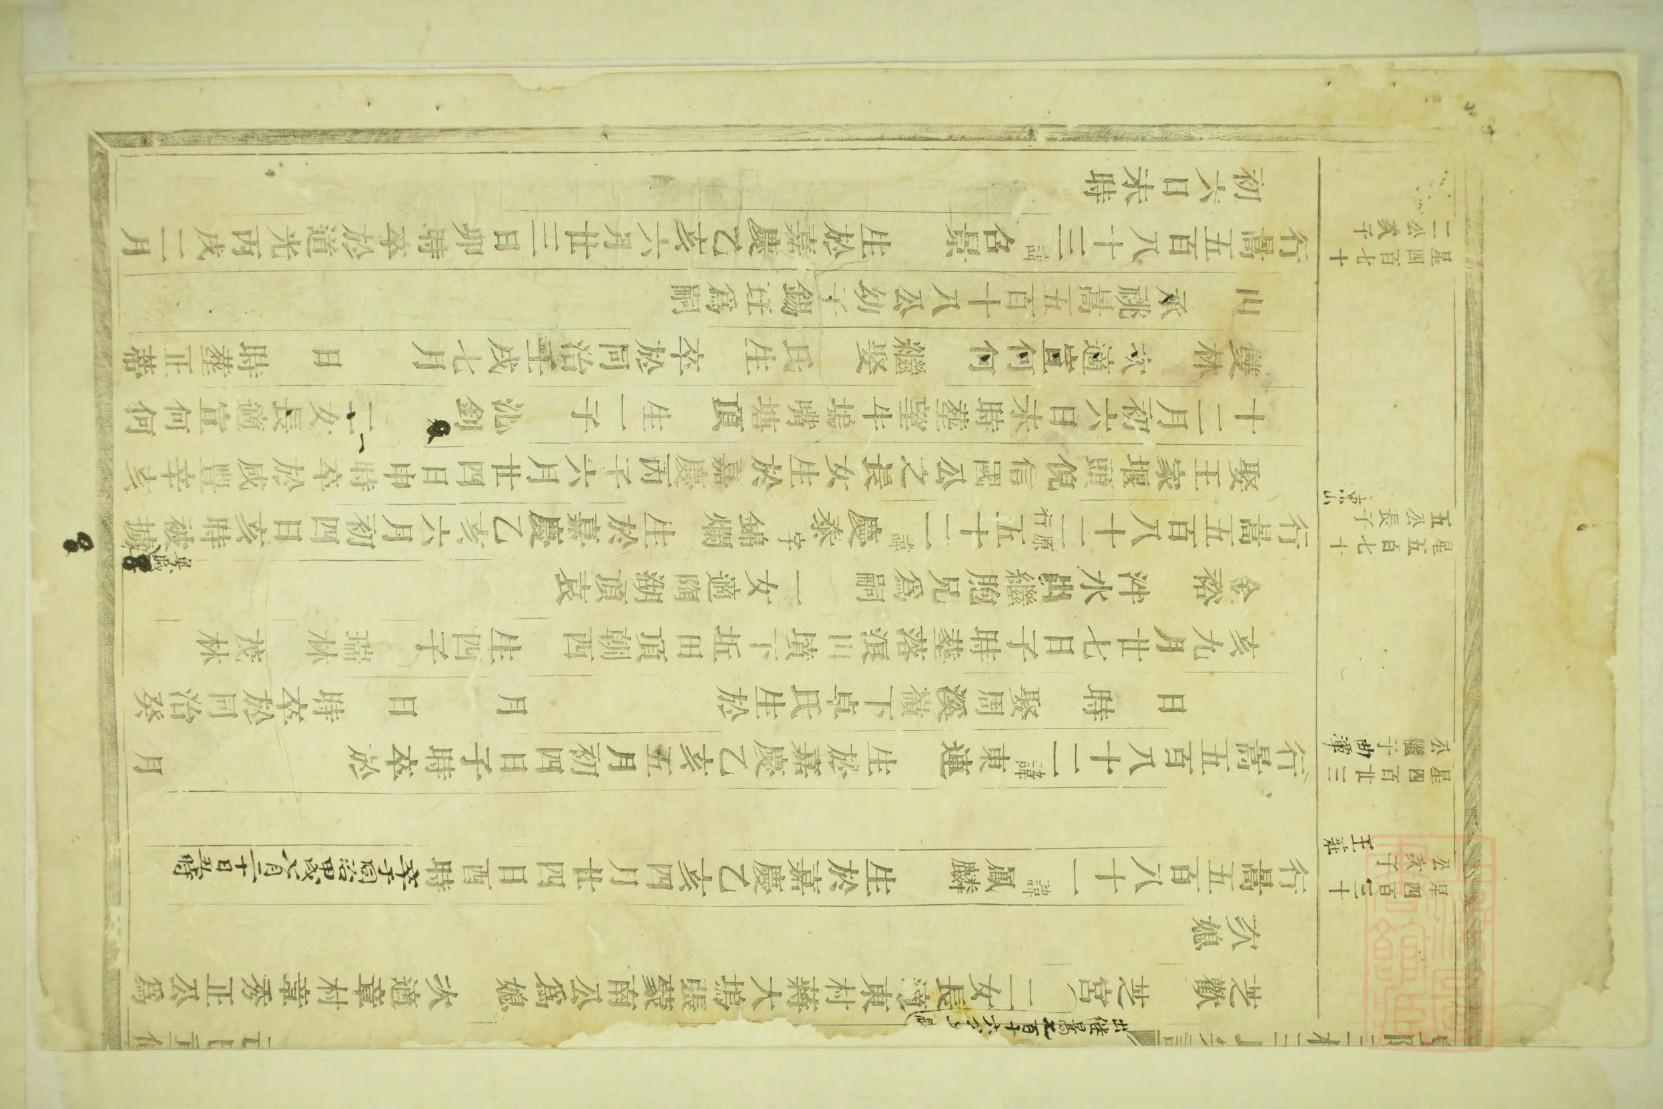 芝歡 芝宮 二女長適東村蔣大塢張南公為媳 次適章村章秀正公為
次媳
星四百三十
公次子
行暠五百八十一 諱鳳麟 生於嘉慶乙亥四月廿四日酉時 卒于同治甲戌八月二十日時
星四百廿三
公繼子
行暠五百八十一 諱東蓮 生於嘉慶乙亥五月初四日子時卒於 月
日 時 娶周溪嶺下卓氏生於 月 日 時卒於同治癸
亥九月廿七日子時葬落浪川墳下近日頂朝西 生四子 瑞林 茂林
金裕 洋水出繼胞兄為嗣 一女適湖頂袁
星五百七十
五公長子
行暠五百八十一 原行五十二 諱慶泰字錦爛生於嘉慶乙亥六月初四日亥時被擄
娶王家堰頭倪信國公之長女生於嘉慶丙子六月廿四日申時卒於咸豐辛亥
十二月初六日未時葬望牛塢嘴塔頂 生一子 沁劍 二女長適宣何何
雙林 次適宣何何 繼娶 氏生 卒於同治壬戌七月 日 時葬正蒂
山 承祧暠五百十八公幼子錫珏為嗣
星四百七十
一公次子
行暠五百八十三 諱名景 生於嘉慶乙亥六月廿三日卯時卒於道光丙戌二月
初六日未時